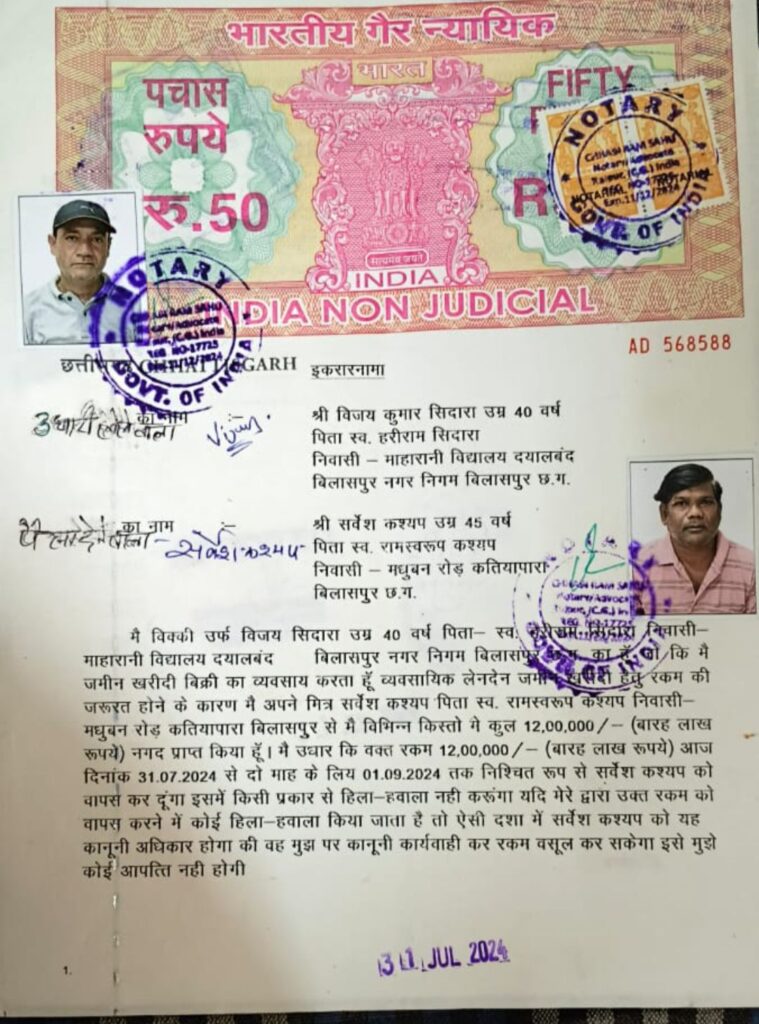 भारतीय गैर न्यायिक
भारत
पचास
रुपये
रु.50
FIFTY
R
सत्यमेव जयते
INDIA
INDIA NON JUDICIAL
NOTARY
GHASI RAM SAHU
Notary Advocate
Raipur, (C.G.) India
NOTARIAL
REG. NO-17725
Exp.11/12/2024
GOVT. OF INDIA
NOTARY
RAM SAHU
Notary Advocate
(C.G.) India
REG. NO-17725
11/12/2024
GOVT. OF INDIA
AD 568588
छत्तीसगढ़ CHHATTISGARH
इकरारनामा
का नाम
उधारी लेने वाला
श्री विजय कुमार सिदारा उम्र 40 वर्ष
पिता स्व. हरीराम सिदारा
निवासी – माहारानी विद्यालय दयालबंद
बिलासपुर नगर निगम बिलासपुर छ.ग.
का नाम
देने वाला – सर्वेश कश्यप
श्री सर्वेश कश्यप उम्र 45 वर्ष
पिता स्व. रामस्वरूप कश्यप
निवासी – मधुबन रोड़ कतियापारा
बिलासपुर छ.ग.
NOTARY
GHASI RAM SAHU
Notary Advocate
Raipur, (C.G.) In
REG. NO-17725
GOVT. OF INDIA
मै विक्की उर्फ विजय सिदारा उम्र 40 वर्ष पिता– स्व. हरीराम सिदारा निवासी–
माहारानी विद्यालय दयालबंद बिलासपुर नगर निगम बिलासपुर छ.ग. का हूँ जो कि मै
जमीन खरीदी बिक्री का व्यवसाय करता हूँ व्यवसायिक लेनदेन जमीन खरीदी हेतु रकम की
जरूरत होने के कारण मै अपने मित्र सर्वेश कश्यप पिता स्व. रामस्वरूप कश्यप निवासी–
मधुबन रोड़ कतियापारा बिलासपुर से मै विभिन्न किस्तो मे कुल 12,00,000/– (बारह लाख
रूपये) नगद प्राप्त किया हूँ। मै उधार कि वक्त रकम 12,00,000/– (बारह लाख रूपये) आज
दिनांक 31.07.2024 से दो माह के लिय 01.09.2024 तक निश्चित रूप से सर्वेश कश्यप को
वापस कर दूंगा इसमें किसी प्रकार से हिला–हवाला नही करूंगा यदि मेरे द्वारा उक्त रकम को
वापस करने में कोई हिला–हवाला किया जाता है तो ऐसी दशा में सर्वेश कश्यप को यह
कानूनी अधिकार होगा की वह मुझ पर कानूनी कार्यवाही कर रकम वसूल कर सकेगा इसे मुझे
कोई आपत्ति नही होगी
31 JUL 2024
1.